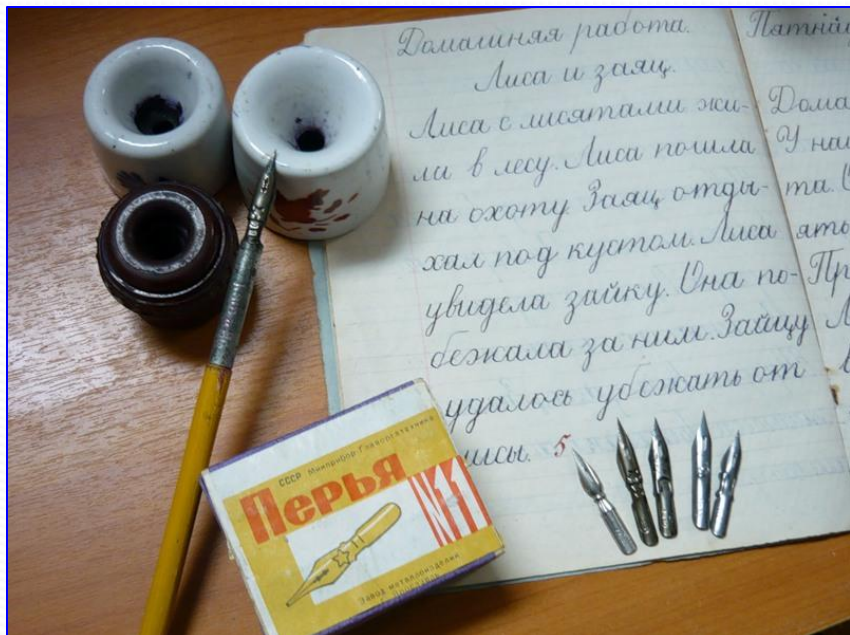 Домашняя работа.
Лиса и заяц.
Лиса с лисятами жи-
ли в лесу. Лиса пошла
на охоту. Заяц отды-
хал под кустом. Лиса
увидела зайку. Она по-
бежала за ним. Зайцу
удалось убежать от
лисы. 5
Дома
У наш
та.
ять
Пр
СССР Минприбор Главоргатехника
Перья
№11
Завод металлоизделий